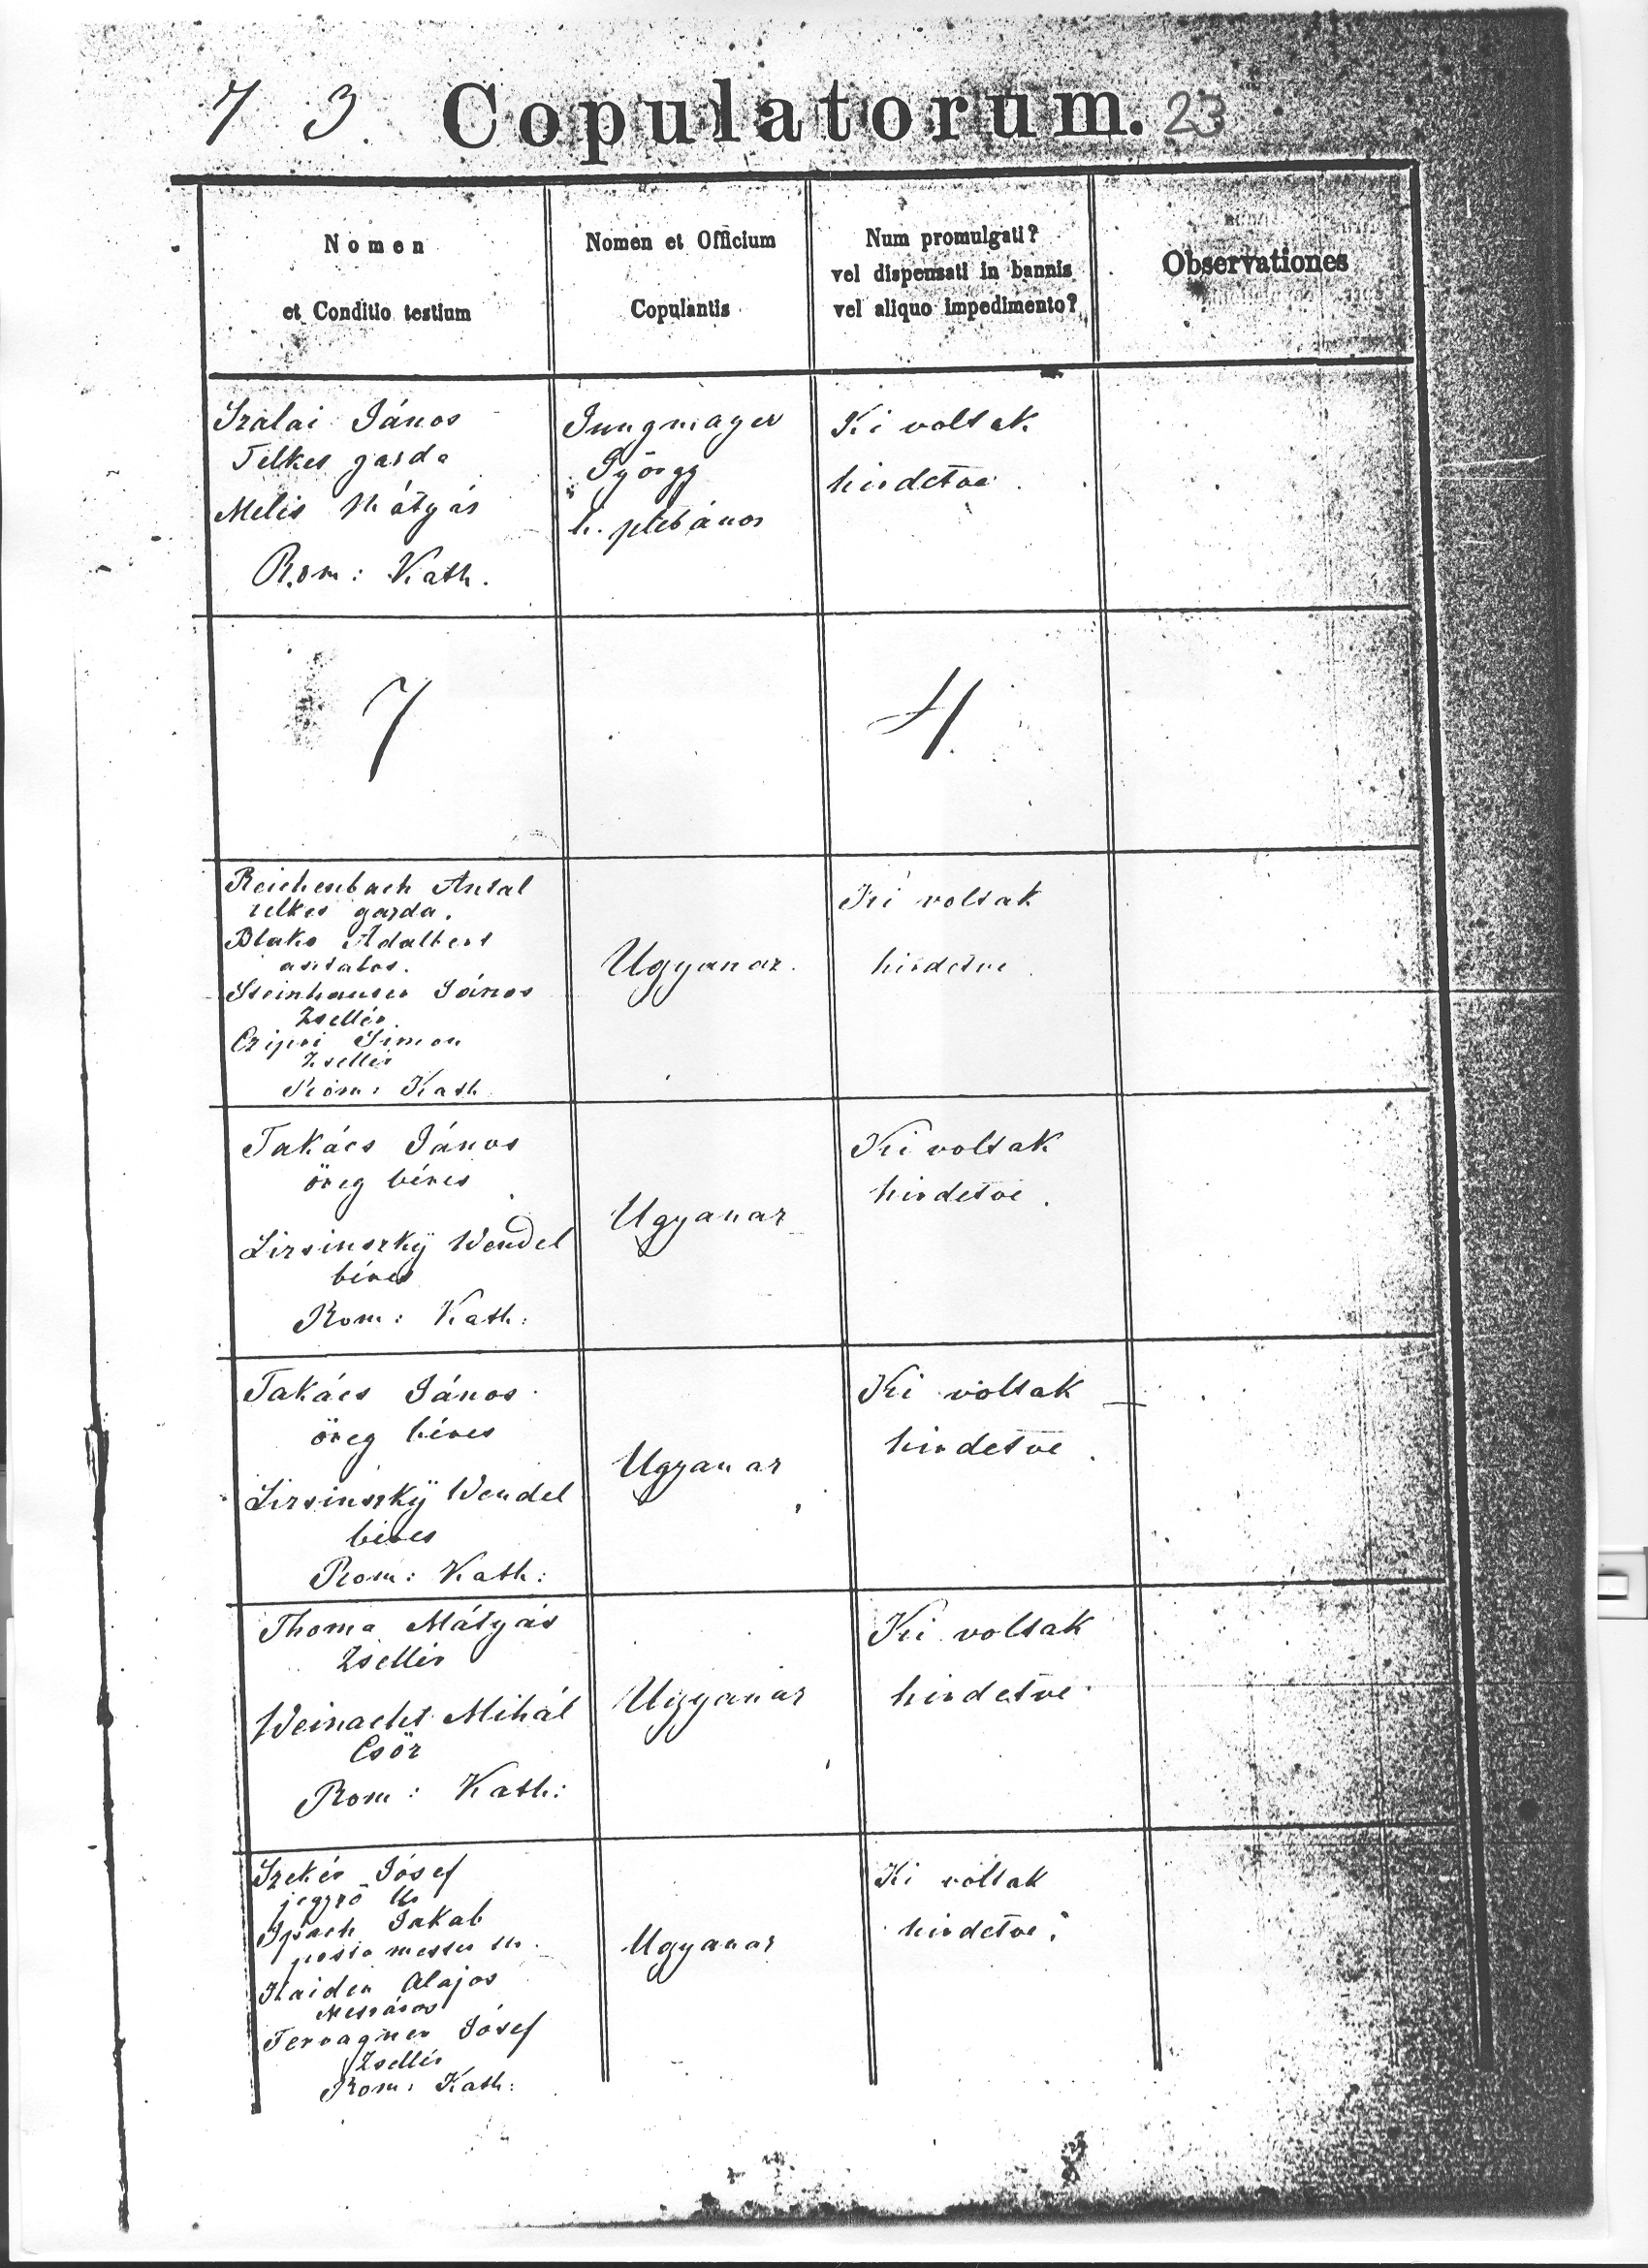 7 3. Copulatorum. 23
Nomen
et Conditio testium
Nomen et Officium
Copulantis
Num promulgati?
vel dispensati in bannis
vel aliquo impedimento?
Observationes
Szalai János
Telkes gazda
Melis Mátyás
Rom: Kath.
Jungmayer
György
h. plébános
Ki voltak
hirdetve.
7
4
Reichenbach Antal
telkes gazda.
Blako Adalbert
asztalos.
Steinhauser János
Zsellér.
Czipri Simon
Zsellér
Rom: Kath.
Ugyanaz.
Ki voltak
hirdetve.
Takács János
öreg béres
Lirsinszkÿ Wendel
béres
Rom: Kath:
Ugyanaz
Ki voltak
hirdetve.
Takács János
öreg béres
Lirsinszkÿ Wendel
béres
Rom: Kath:
Ugyanaz
Ki voltak
hirdetve.
Thoma Mátyás
Zsellér
Weinacht Mihál
Csőz
Rom: Kath:
Ugyanaz
Ki voltak
hirdetve.
Szekér Jósef
jegyző Ur
Ipach Jakab
posta mester Ur.
Haider Alajos
Meszáros
Tervagner Jósef
Zsellér
Rom: Kath:
Ugyanaz
Ki voltak
hirdetve.